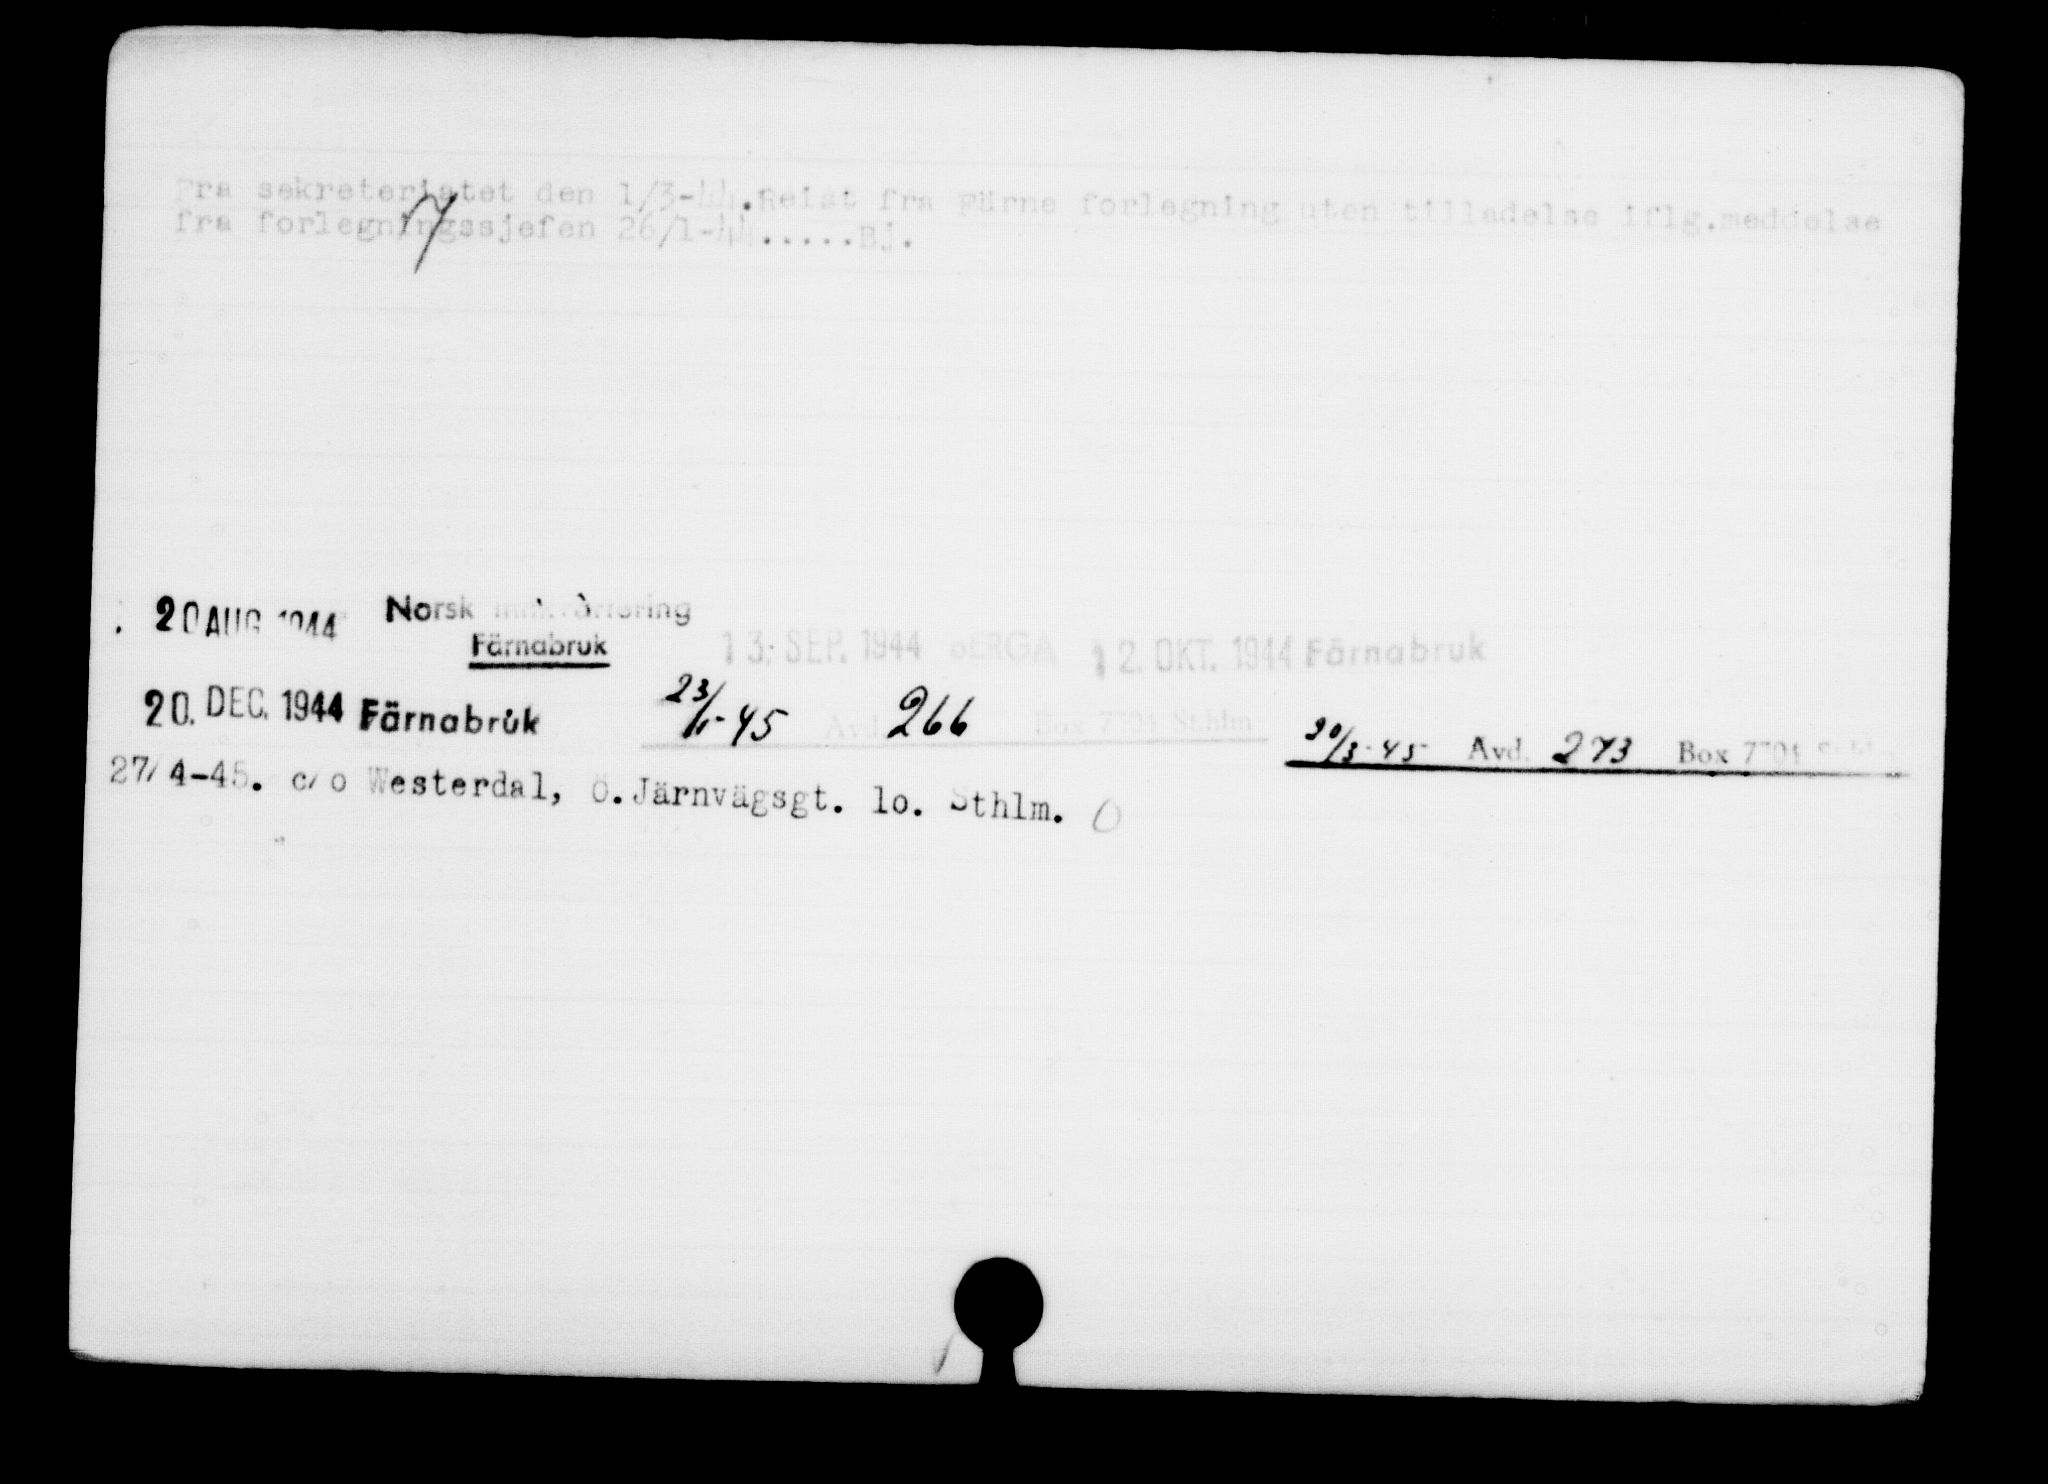 Fra sekreteriatet den 1/3-44. Reist fra Färna forlegning uten tilladelse iflg.meddelse
fra forlegningssjefen 26/1-44.....Bj.
20 AUG 1944 Norsk Innkvartering
Färnabruk
13. SEP. 1944 BERGA 12. OKT. 1944 Färnabruk
20. DEC. 1944 Färnabruk 23/1-45 Avd. 266 Box 7704 Sthlm
20/3-45 Avd. 273 Box 7704 Sthlm
27/4-45. c/o Westerdal, Ö.Järnvägsgt. lo. Sthlm.